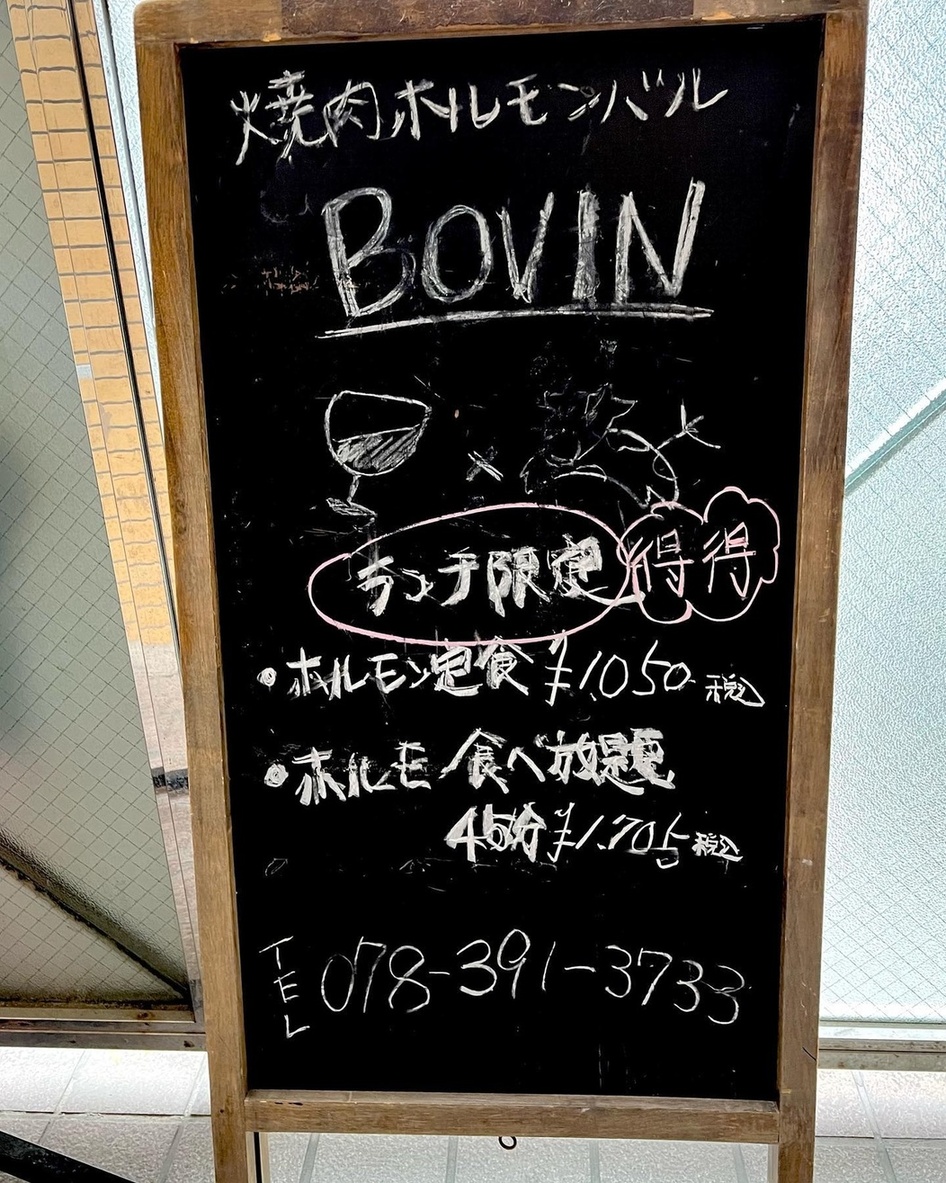 焼肉ホルモンバル
BOVIN
×
ランチ限定 得得
• ホルモン定食 ¥1,050 税込
• ホルモン食べ放題
45分 ¥1,705 税込
TEL 078-391-3733